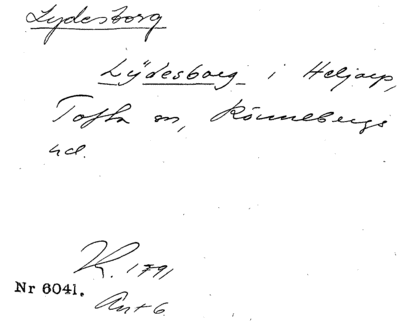 Lydesborg
Lÿdesborg i Heljarp,
Tofta sn, Rönnebergs
hd.
1791
Nr 6041.
Ant 6